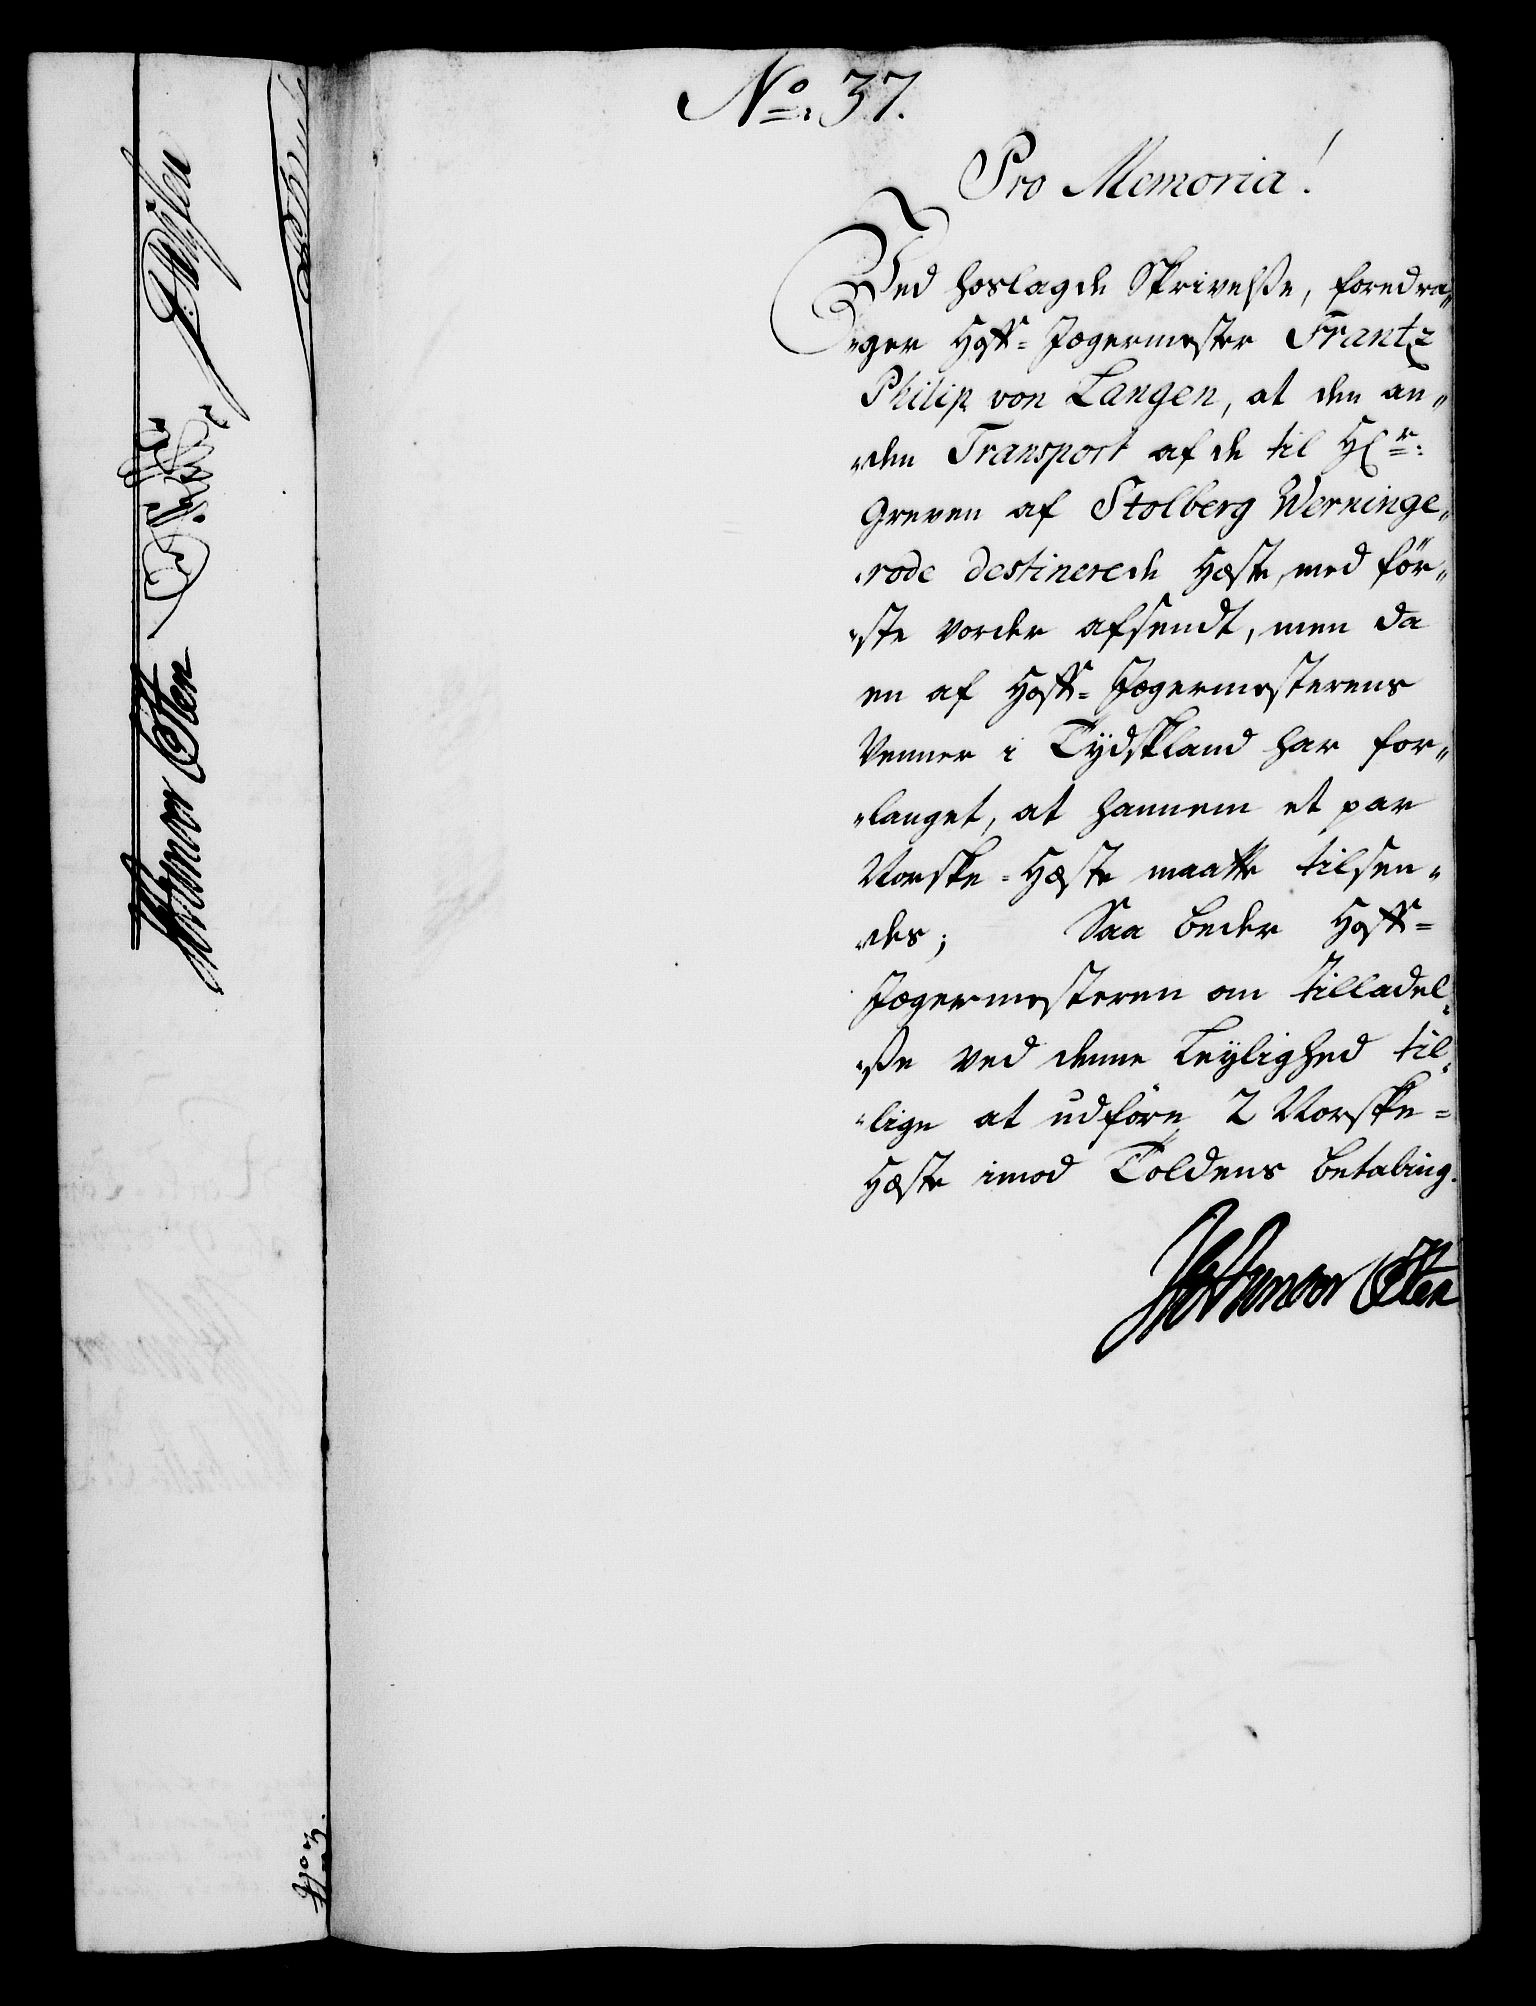 No. 37.
Pro Memoria!
Ved hoslagde Skrivelße, foredra„
„ger Hoff-Jægermester Frantz
Philip von Langen, at den an„
„den Transport af de til Hr:
Greven af Stolberg Werninge„
„rode destinerede Hæste, med før„
„ste vorder afsendt, men da
en af Hoff-Jægermesterens
Venner i Tydskland har for„
„langet, at hannem et par
Norske-Hæste maatte tilsen„
„des; Saa beder Hoff-
Jægermesteren om Tilladel„
„ße ved denne Leylighed til„
„lige at udføre 2 Norske-
Hæste imod Toldens betaling.
Osten
Osten